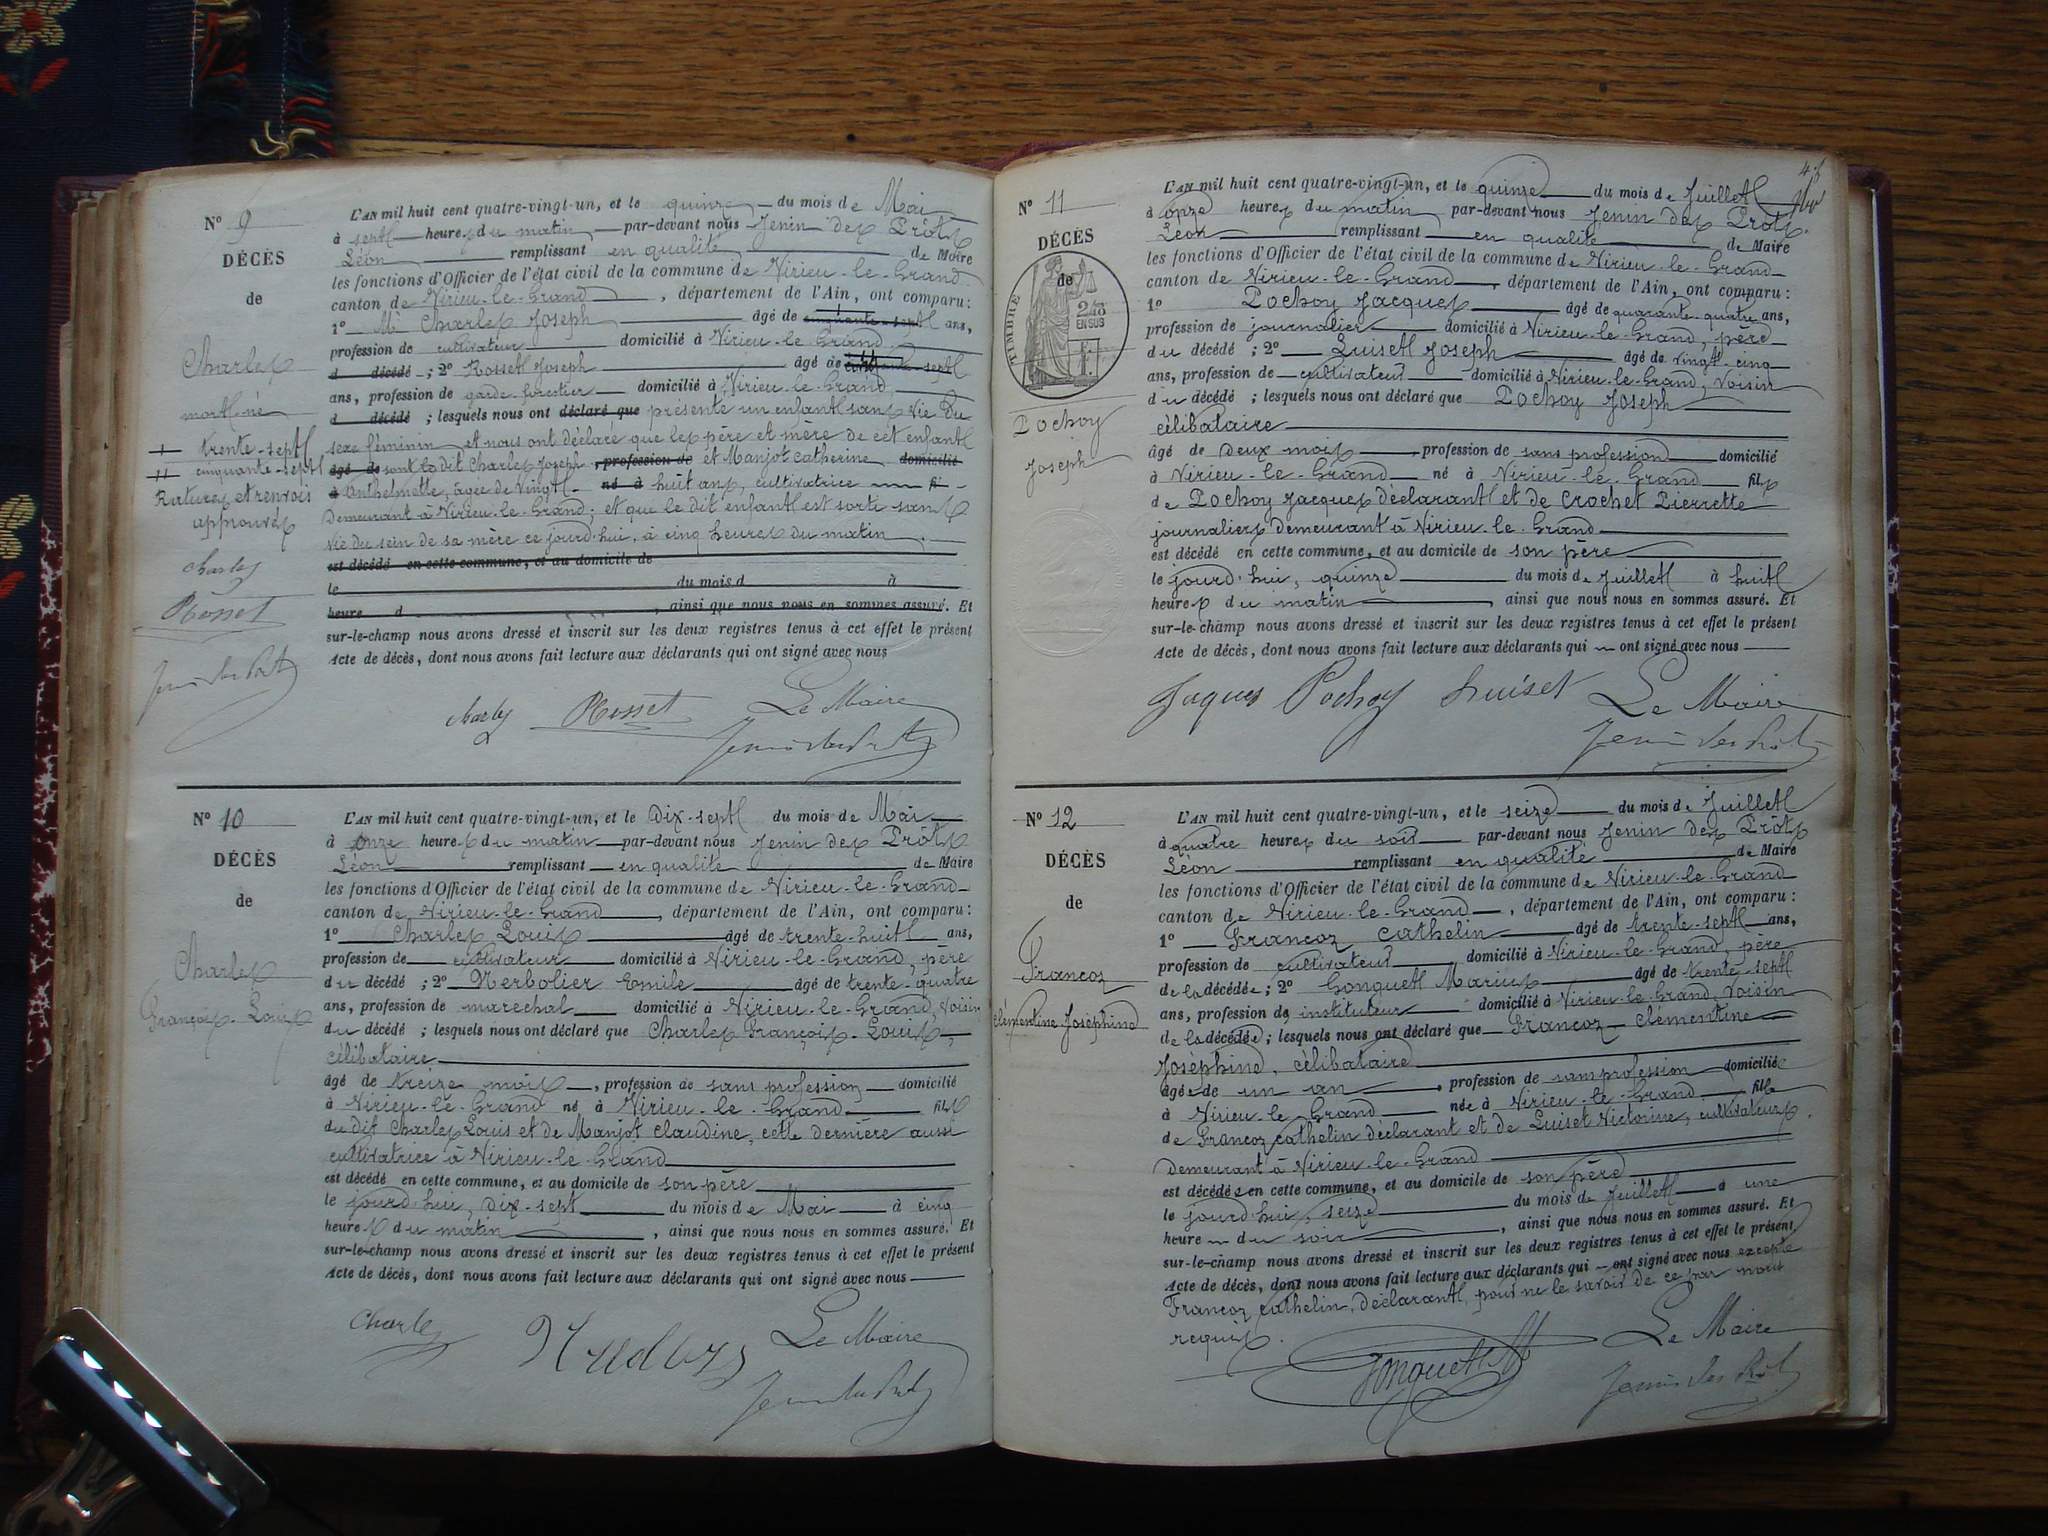 N° 9
DÉCÈS
de
Charles
mort-né
trente-sept
cinquante-sept
Ratures et renvois
approuvés
Charles
Rosset
L'AN mil huit cent quatre-vingt-un, et le quinze du mois de Mai
à sept heures du matin par-devant nous Jenin des Prôts
Léon remplissant en qualité de Maire
les fonctions d'Officier de l'état civil de la commune de Virieu-le-Grand
canton de Virieu-le-Grand, département de l'Ain, ont comparu :
1° Charles Joseph âgé de cinquante-sept ans,
profession de cultivateur domicilié à Virieu-le-Grand
d décédé ; 2° Rosset Joseph âgé de
ans, profession de garde-forestier domicilié à Virieu-le-Grand
d décédé ; lesquels nous ont déclaré que présenté un enfant sans vie du
sexe féminin et nous ont déclaré que les père et mère de cet enfant
âgé de sont le dit Charles Joseph, profession de et Manjot Catherine domicilié
à Anthelmette, âgée de vingt- né à huit ans, cultivatrice
demeurant à Virieu-le-Grand ; et que le dit enfant est sorti sans
vie du sein de sa mère ce jourd'hui, à cinq heures du matin.
est décédé en cette commune, et au domicile de
le du mois d à
heure d, ainsi que nous nous en sommes assuré. Et
sur-le-champ nous avons dressé et inscrit sur les deux registres tenus à cet effet le présent
Acte de décès, dont nous avons fait lecture aux déclarants qui ont signé avec nous
Charles Rosset Le Maire
Jenin des Prôts
N° 10
DÉCÈS
de
Charles
François-Louis
L'AN mil huit cent quatre-vingt-un, et le dix-sept du mois de Mai
à onze heures du matin par-devant nous Jenin des Prôts
Léon remplissant en qualité de Maire
les fonctions d'Officier de l'état civil de la commune de Virieu-le-Grand
canton de Virieu-le-Grand, département de l'Ain, ont comparu :
1° Charles Louis âgé de trente-huit ans,
profession de cultivateur domicilié à Virieu-le-Grand, père
du décédé ; 2° Verbolier Emile âgé de trente-quatre
ans, profession de maréchal domicilié à Virieu-le-Grand, voisin
du décédé ; lesquels nous ont déclaré que Charles François-Louis,
célibataire
âgé de treize mois, profession de sans profession domicilié
à Virieu-le-Grand né à Virieu-le-Grand fils
du dit Charles Louis et de Manjot Claudine, cette dernière aussi
cultivatrice à Virieu-le-Grand
est décédé en cette commune, et au domicile de son père
le jourd'hui, dix-sept du mois de Mai à cinq
heures du matin, ainsi que nous nous en sommes assuré. Et
sur-le-champ nous avons dressé et inscrit sur les deux registres tenus à cet effet le présent
Acte de décès, dont nous avons fait lecture aux déclarants qui ont signé avec nous
Charles Le Maire
Jenin des Prôts
N° 11
DÉCÈS
de
TIMBRE
2/10
EN SUS
Pochoy
Joseph
L'AN mil huit cent quatre-vingt-un, et le quinze du mois de Juillet
à onze heures du matin par-devant nous Jenin des Prôts
Léon remplissant en qualité de Maire
les fonctions d'Officier de l'état civil de la commune de Virieu-le-Grand
canton de Virieu-le-Grand, département de l'Ain, ont comparu :
1° Pochoy Jacques âgé de quarante-quatre ans,
profession de journalier domicilié à Virieu-le-Grand, père
du décédé ; 2° Luiset Joseph âgé de vingt-cinq
ans, profession de cultivateur domicilié à Virieu-le-Grand, voisin
du décédé ; lesquels nous ont déclaré que Pochoy Joseph
célibataire
âgé de deux mois, profession de sans profession domicilié
à Virieu-le-Grand né à Virieu-le-Grand fils
de Pochoy Jacques déclarant et de Crochet Pierrette
journaliers demeurant à Virieu-le-Grand
est décédé en cette commune, et au domicile de son père
le jourd'hui, quinze du mois de Juillet à huit
heures du matin, ainsi que nous nous en sommes assuré. Et
sur-le-champ nous avons dressé et inscrit sur les deux registres tenus à cet effet le présent
Acte de décès, dont nous avons fait lecture aux déclarants qui ont signé avec nous
Jaques Pochoy Luiset Le Maire
Jenin des Prôts
N° 12
DÉCÈS
de
Francoz
Clémentine Joséphine
L'AN mil huit cent quatre-vingt-un, et le seize du mois de Juillet
à quatre heures du soir par-devant nous Jenin des Prôts
Léon remplissant en qualité de Maire
les fonctions d'Officier de l'état civil de la commune de Virieu-le-Grand
canton de Virieu-le-Grand, département de l'Ain, ont comparu :
1° Francoz Cathelin âgé de trente-sept ans,
profession de cultivateur domicilié à Virieu-le-Grand, père
de la décédée ; 2° Gonguet Marius âgé de trente-sept
ans, profession de instituteur domicilié à Virieu-le-Grand, voisin
de la décédée ; lesquels nous ont déclaré que Francoz Clémentine
Joséphine, célibataire
âgée de un an, profession de sans profession domiciliée
à Virieu-le-Grand née à Virieu-le-Grand fille
de Francoz Cathelin déclarant et de Luiset Victorine, cultivateurs
demeurant à Virieu-le-Grand
est décédée en cette commune, et au domicile de son père
le jourd'hui, seize du mois de Juillet à une
heure du soir, ainsi que nous nous en sommes assuré. Et
sur-le-champ nous avons dressé et inscrit sur les deux registres tenus à cet effet le présent
Acte de décès, dont nous avons fait lecture aux déclarants qui ont signé avec nous excepté
Francoz Cathelin, déclarant, pour ne le savoir de ce par nous
requis.
Gonguet M Le Maire
Jenin des Prôts